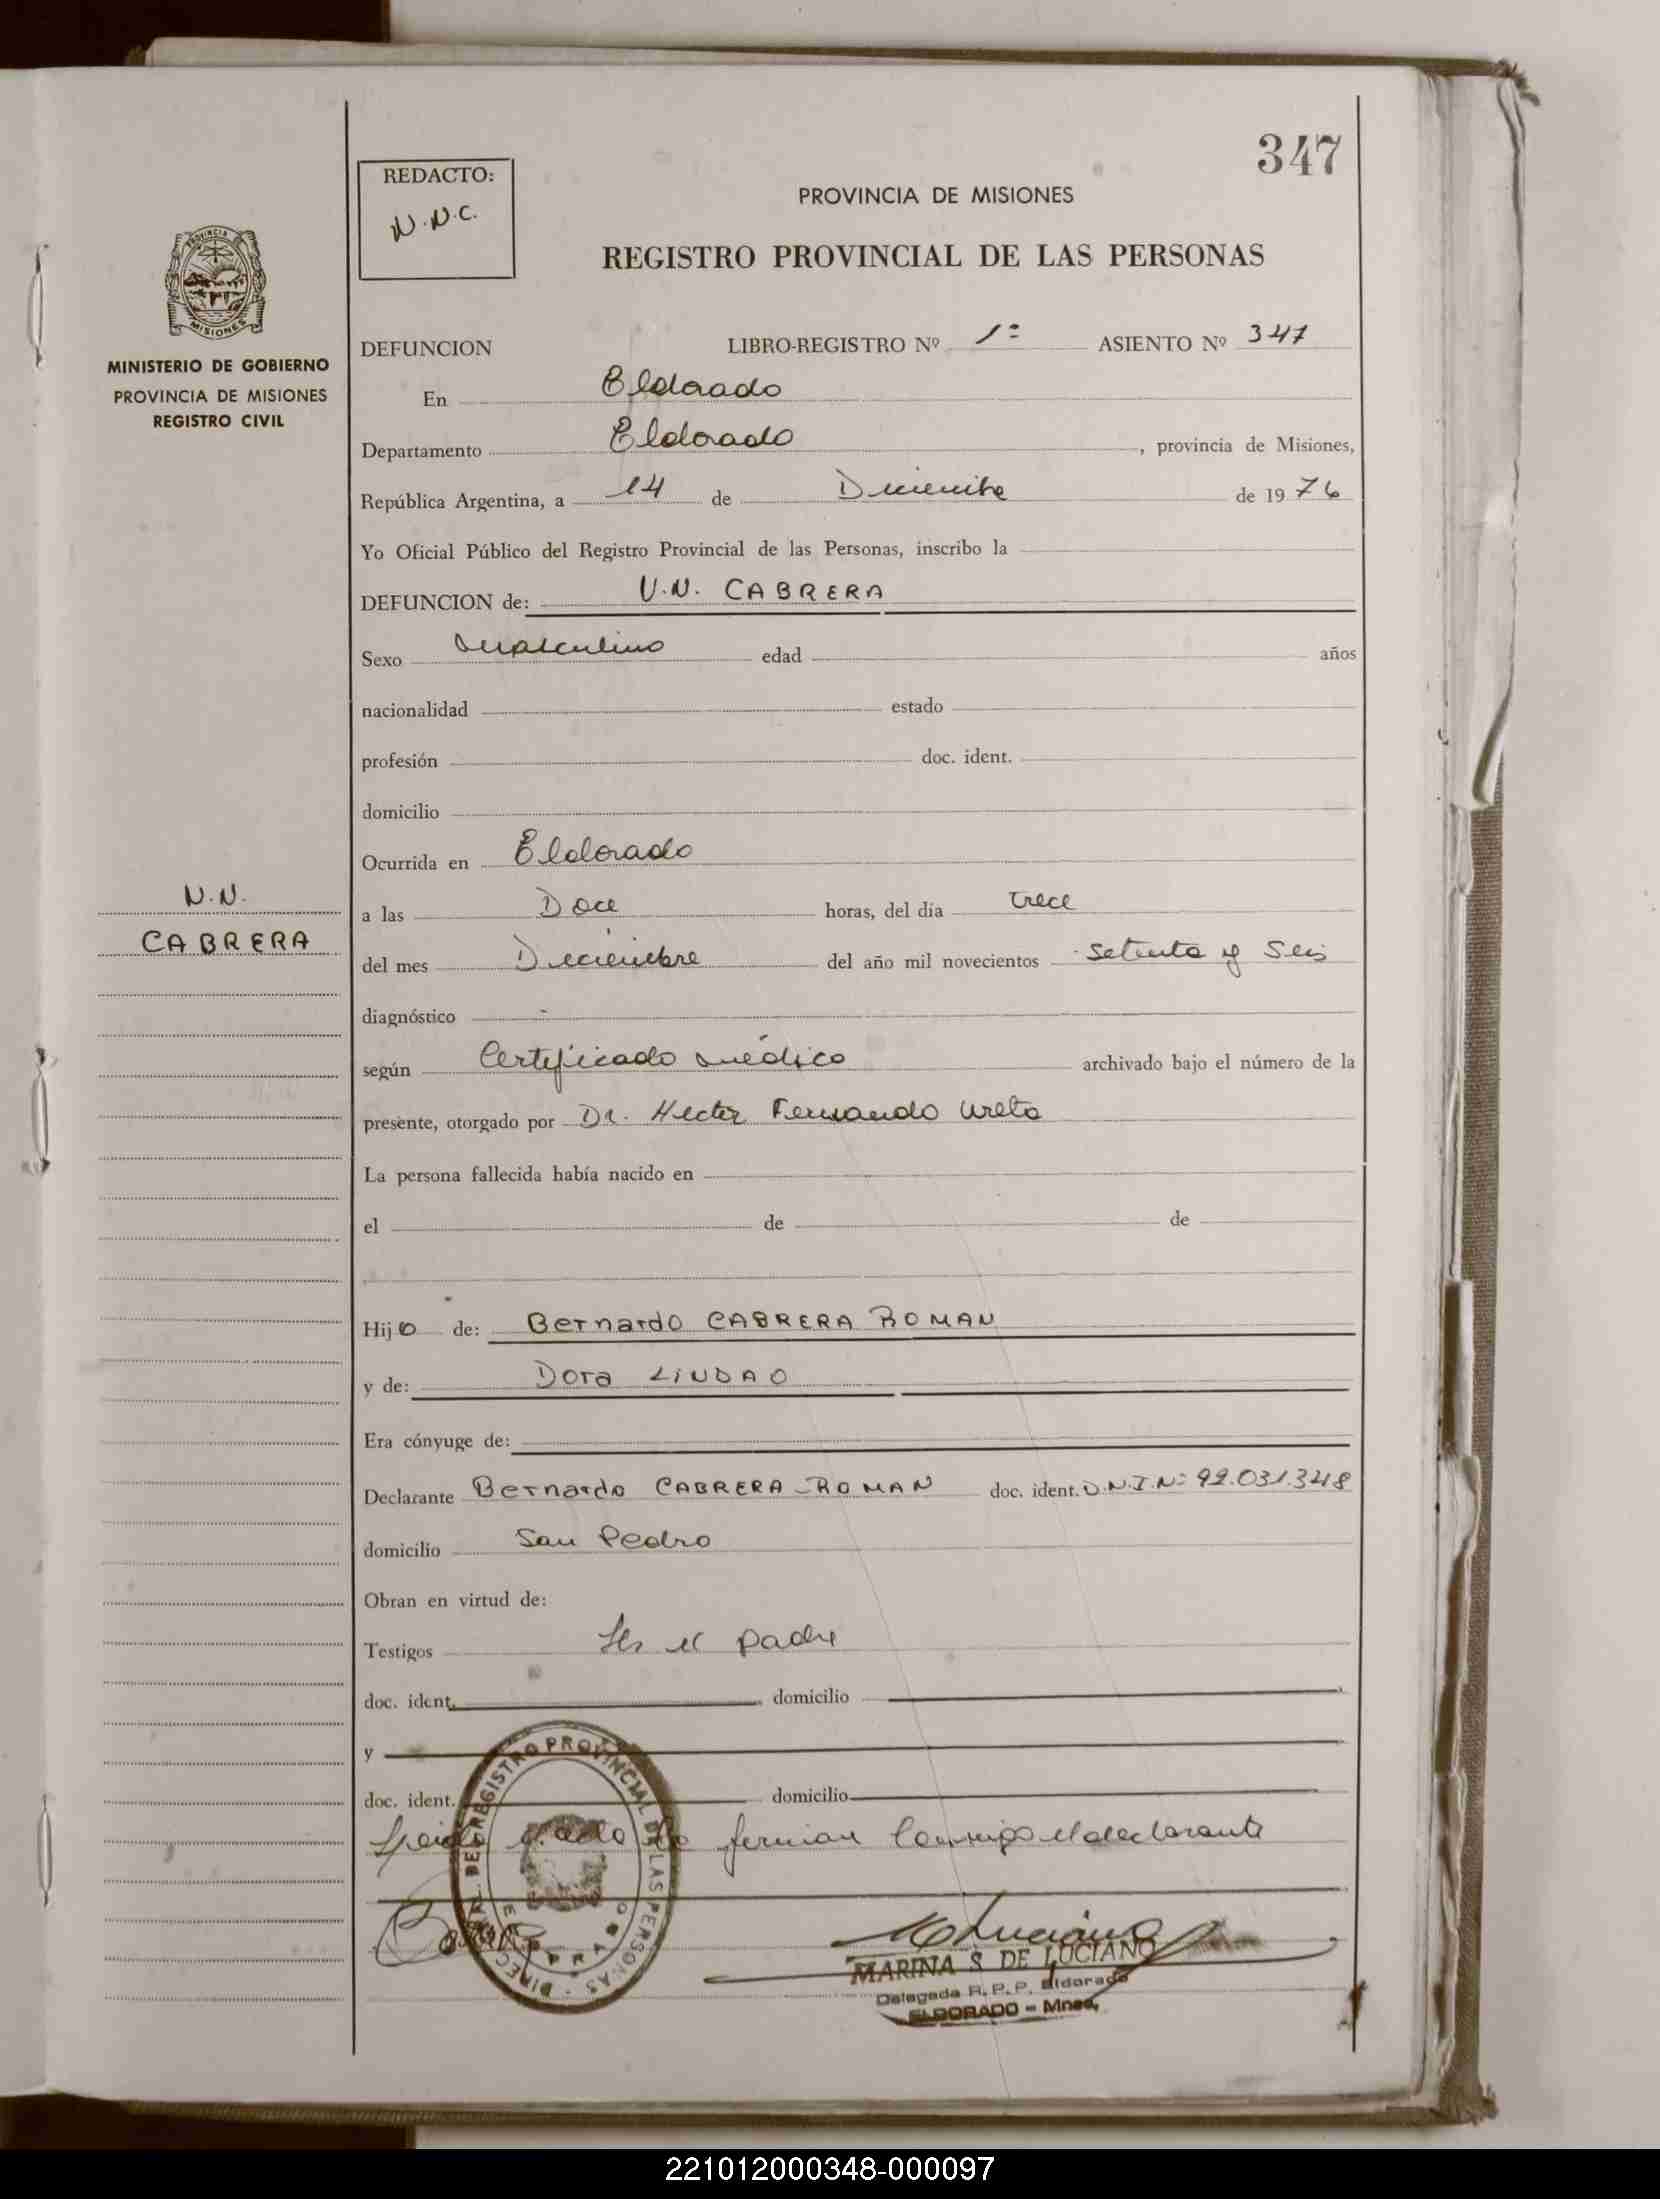 347
REDACTO:
N.N.C.
PROVINCIA DE MISIONES
REGISTRO PROVINCIAL DE LAS PERSONAS
PROVINCIA
MISIONES
MINISTERIO DE GOBIERNO
PROVINCIA DE MISIONES
REGISTRO CIVIL
N.N.
CABRERA
DEFUNCION LIBRO-REGISTRO Nº 1º ASIENTO Nº 347
En Eldorado
Departamento Eldorado, provincia de Misiones,
República Argentina, a 14 de Diciembre de 1976
Yo Oficial Público del Registro Provincial de las Personas, inscribo la
DEFUNCION de: N.N. CABRERA
Sexo Masculino edad años
nacionalidad estado
profesión doc. ident.
domicilio
Ocurrida en Eldorado
a las Doce horas, del día trece
del mes Diciembre del año mil novecientos setenta y seis
diagnóstico
según Certificado médico archivado bajo el número de la
presente, otorgado por Dr. Hector Fernando Ureta
La persona fallecida había nacido en
el de de
Hijo de: Bernardo CABRERA ROMAN
y de: Dora LINDAO
Era cónyuge de:
Declarante Bernardo CABRERA ROMAN doc. ident. D.N.I.Nº 92.031.348
domicilio San Pedro
Obran en virtud de:
Testigos Ser el padre
doc. ident. domicilio
y
doc. ident. domicilio
Leida el acta la firman Conmigo el declarante
REGISTRO PROVINCIAL DE LAS PERSONAS
MARINA S. DE LUCIANO
Delegada R. P. P. Eldorado
ELDORADO - Mnes.
221012000348-000097